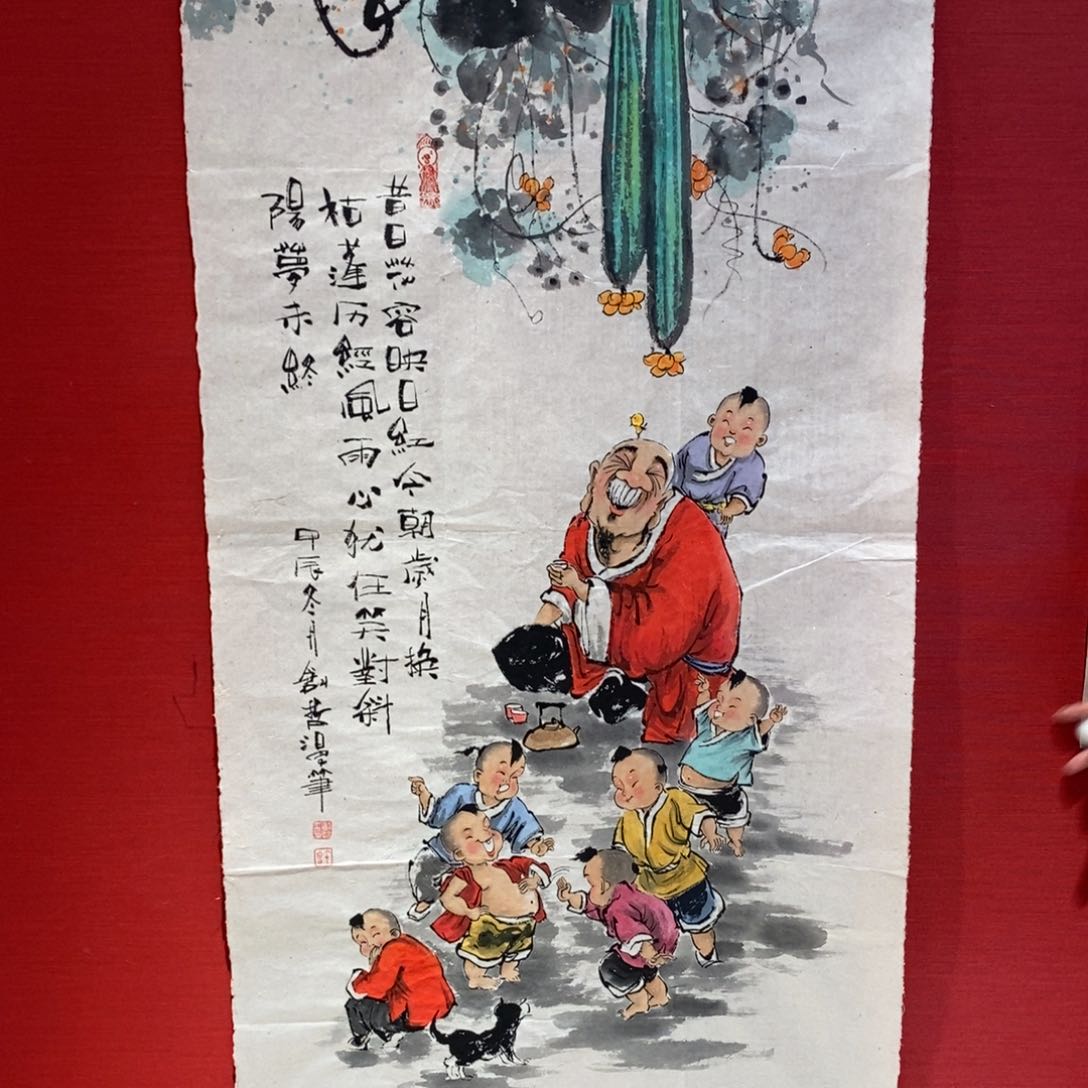 昔日花容映日紅今朝歲月換
枯蓮历經風雨心犹在笑對斜
陽夢未終
甲辰冬月創哲漫筆